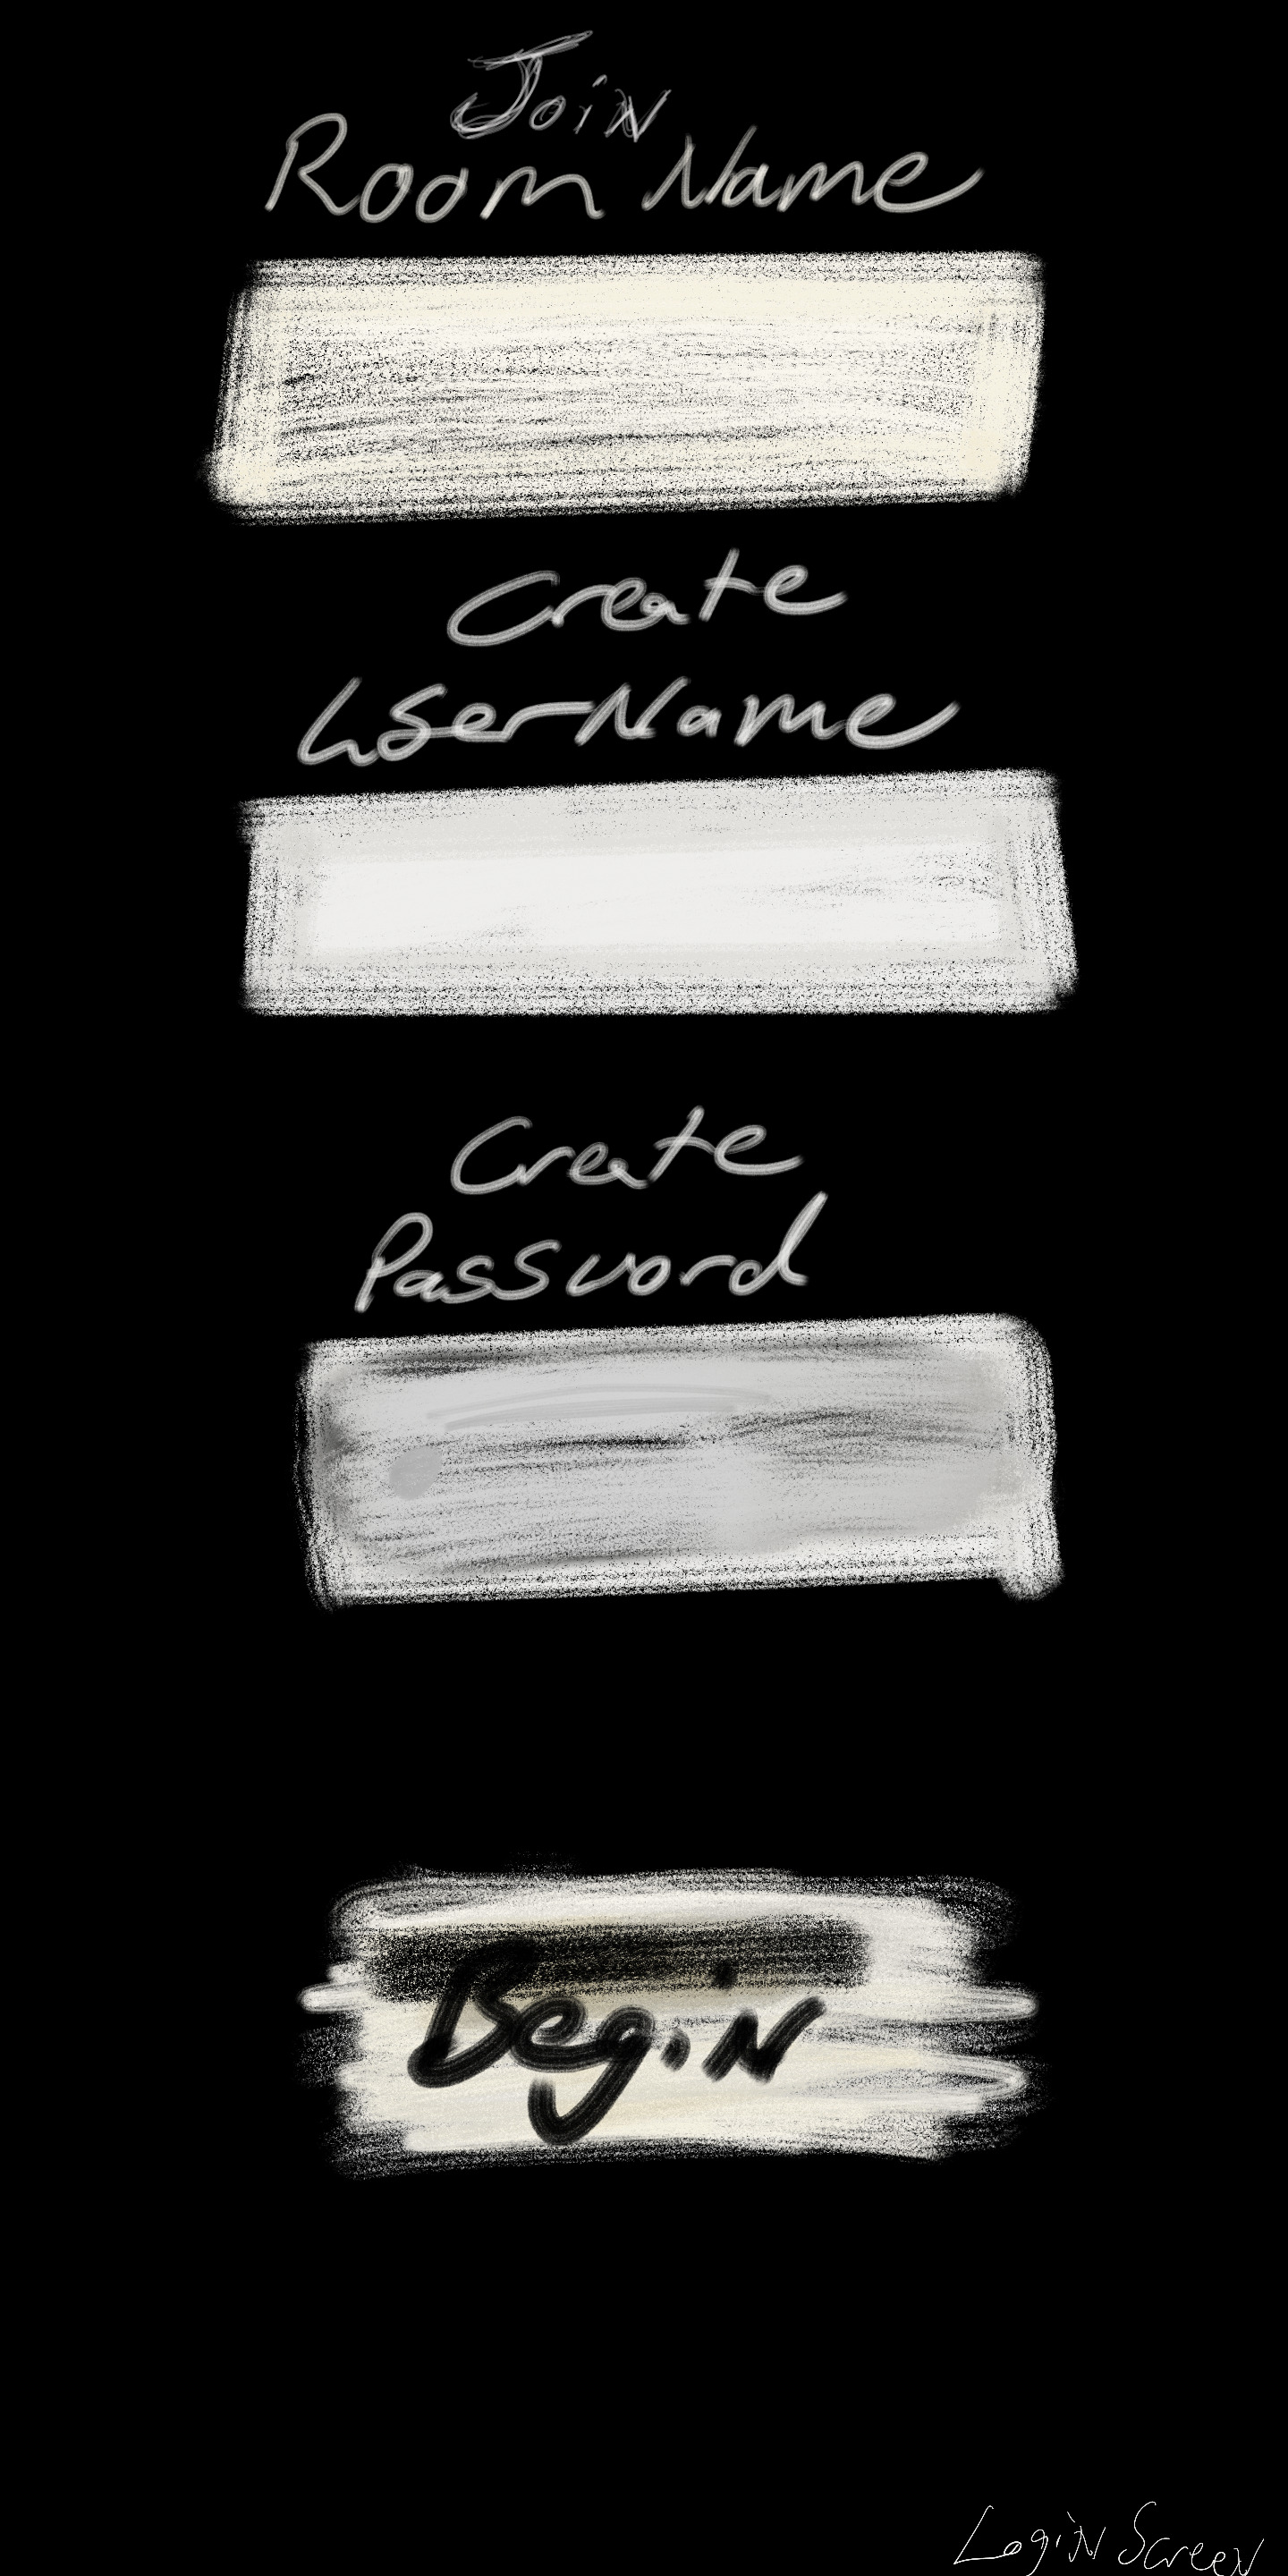 Join
Room Name
Create
UserName
Create
Password
Begin
Login Screen